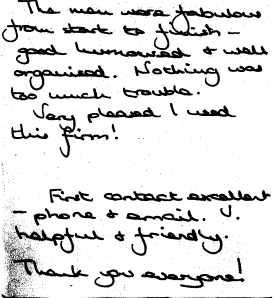 The men were fabulous
from start to finish -
good humoured & well
organised. Nothing was
too much trouble.
Very pleased I used
this firm!
First contact excellent
- phone & email. V.
helpful & friendly.
Thank you everyone!